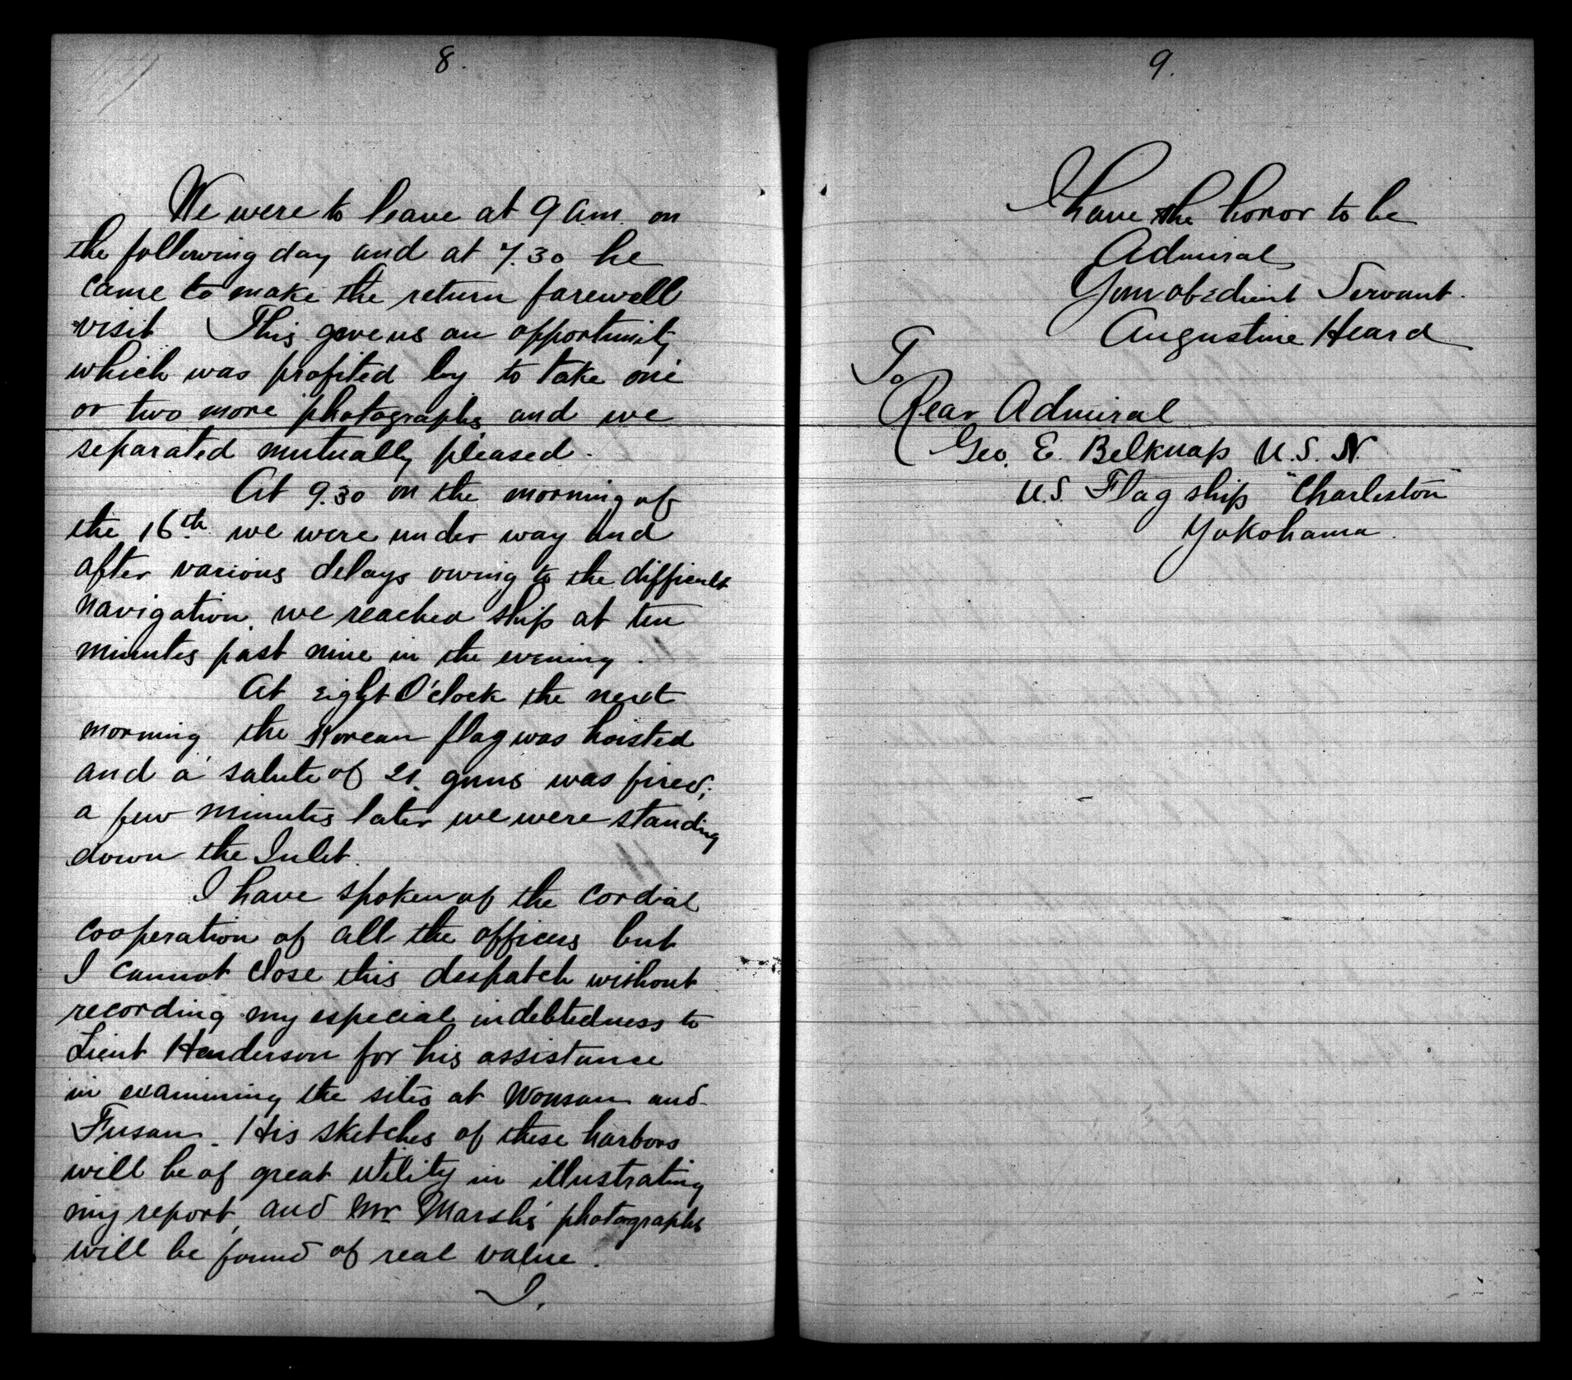 8.
We were to leave at 9 am on
the following day and at 7.30 he
came to make the return farewell
visit This gave us an opportunity
which was profited by to take one
or two more photographs, and we
separated mutually pleased.
At 9.30 on the morning of
the 16th we were under way and
after various delays owing to the difficult
navigation, we reached ship at ten
minutes past nine in the evening.
At eight O'clock the next
morning the Korean flag was hoisted
and a salute of 21. guns was fired;
a few minutes later we were standing
down the Inlet.
I have spoken of the cordial
cooperation of all the officers but
I cannot close this despatch without
recording my especial indebtedness to
Lieut Henderson for his assistance
in examining the sites at Wonsan and
Fusan. His sketches of these harbors
will be of great utility in illustrating
my report, and Mr Marsh's photographs
will be found of real value.
I.
9.
I have the honor to be
Admiral
Your obedient Servant.
Augustine Heard
To
Rear Admiral
Geo. E. Belknap U.S.N.
U.S. Flag ship "Charleston"
Yokohama.